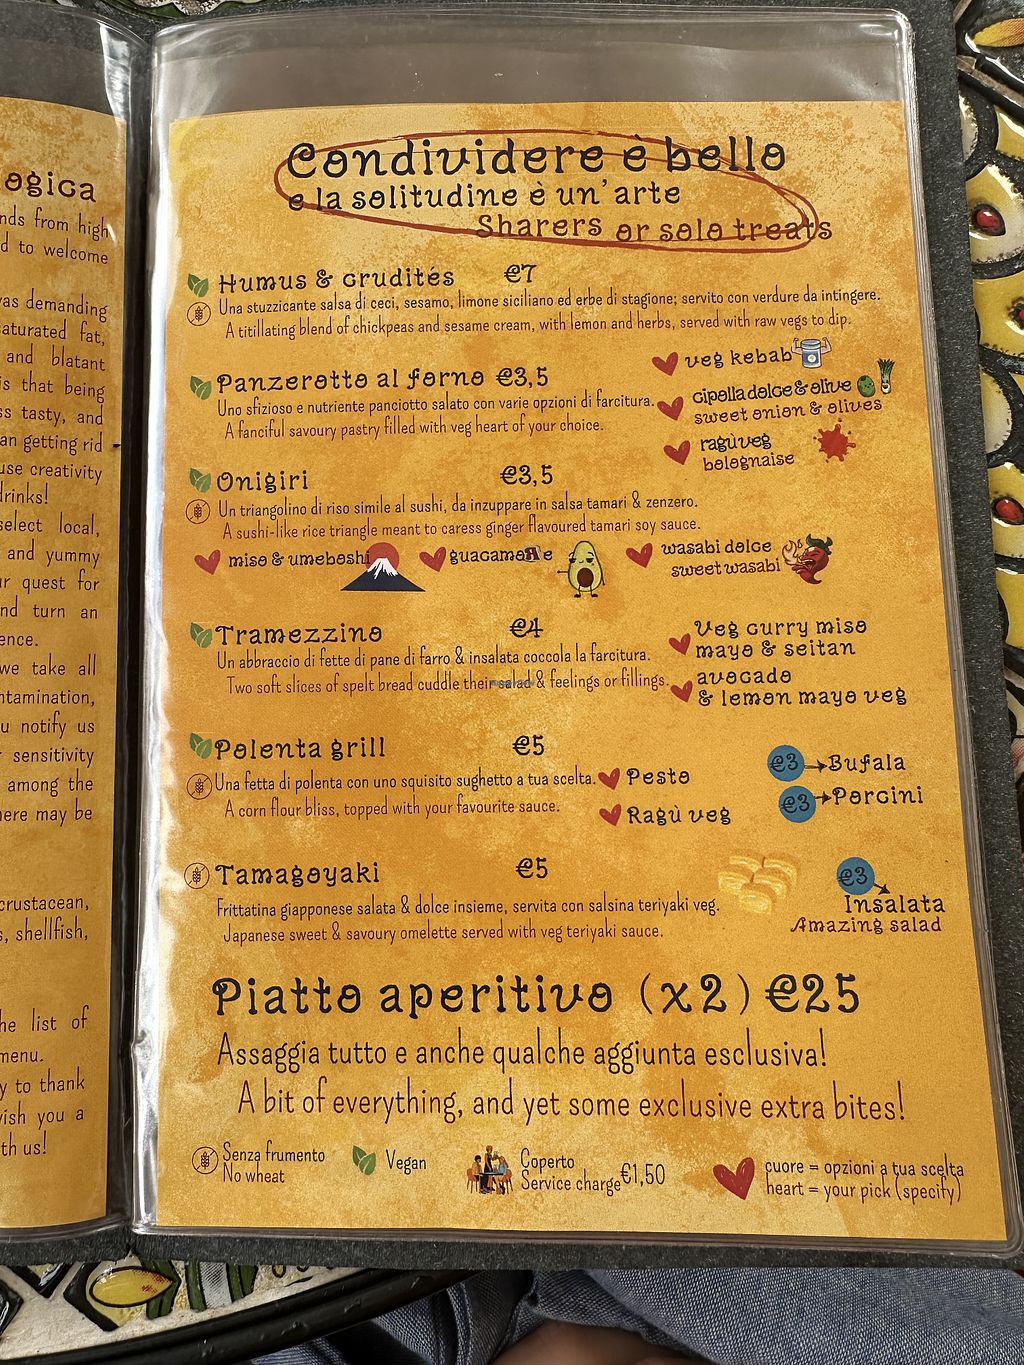 ogica
nds from high
d to welcome
was demanding
saturated fat,
and blatant
is that being
ss tasty, and
an getting rid
use creativity
drinks!
select local,
and yummy
ur quest for
nd turn an
ence.
we take all
ntamination,
u notify us
sensitivity
among the
here may be
crustacean,
s, shellfish,
he list of
menu.
y to thank
wish you a
th us!
Condividere è bello
e la solitudine è un'arte
Sharers or solo treats
Humus & crudités €7
Una stuzzicante salsa di ceci, sesamo, limone siciliano ed erbe di stagione; servito con verdure da intingere.
A titillating blend of chickpeas and sesame cream, with lemon and herbs, served with raw vegs to dip.
Panzerotto al forno €3,5
Uno sfizioso e nutriente panciotto salato con varie opzioni di farcitura.
A fanciful savoury pastry filled with veg heart of your choice.
veg kebab
cipolla dolce & olive
sweet onion & olives
ragù veg
bolognaise
Onigiri €3,5
Un triangolino di riso simile al sushi, da inzuppare in salsa tamari & zenzero.
A sushi-like rice triangle meant to caress ginger flavoured tamari soy sauce.
miso & umeboshi
guacamoЯe
wasabi dolce
sweet wasabi
Tramezzino €4
Un abbraccio di fette di pane di farro & insalata coccola la farcitura.
Two soft slices of spelt bread cuddle their salad & feelings or fillings.
Veg curry miso
mayo & seitan
avocado
& lemon mayo veg
Polenta grill €5
Una fetta di polenta con uno squisito sughetto a tua scelta.
A corn flour bliss, topped with your favourite sauce.
Pesto
Ragù veg
€3 Bufala
€3 Porcini
Tamagoyaki €5
Frittatina giapponese salata & dolce insieme, servita con salsina teriyaki veg.
Japanese sweet & savoury omelette served with veg teriyaki sauce.
€3
Insalata
Amazing salad
Piatto aperitivo (x2) €25
Assaggia tutto e anche qualche aggiunta esclusiva!
A bit of everything, and yet some exclusive extra bites!
Senza frumento
No wheat
Vegan
Coperto
Service charge €1,50
cuore = opzioni a tua scelta
heart = your pick (specify)